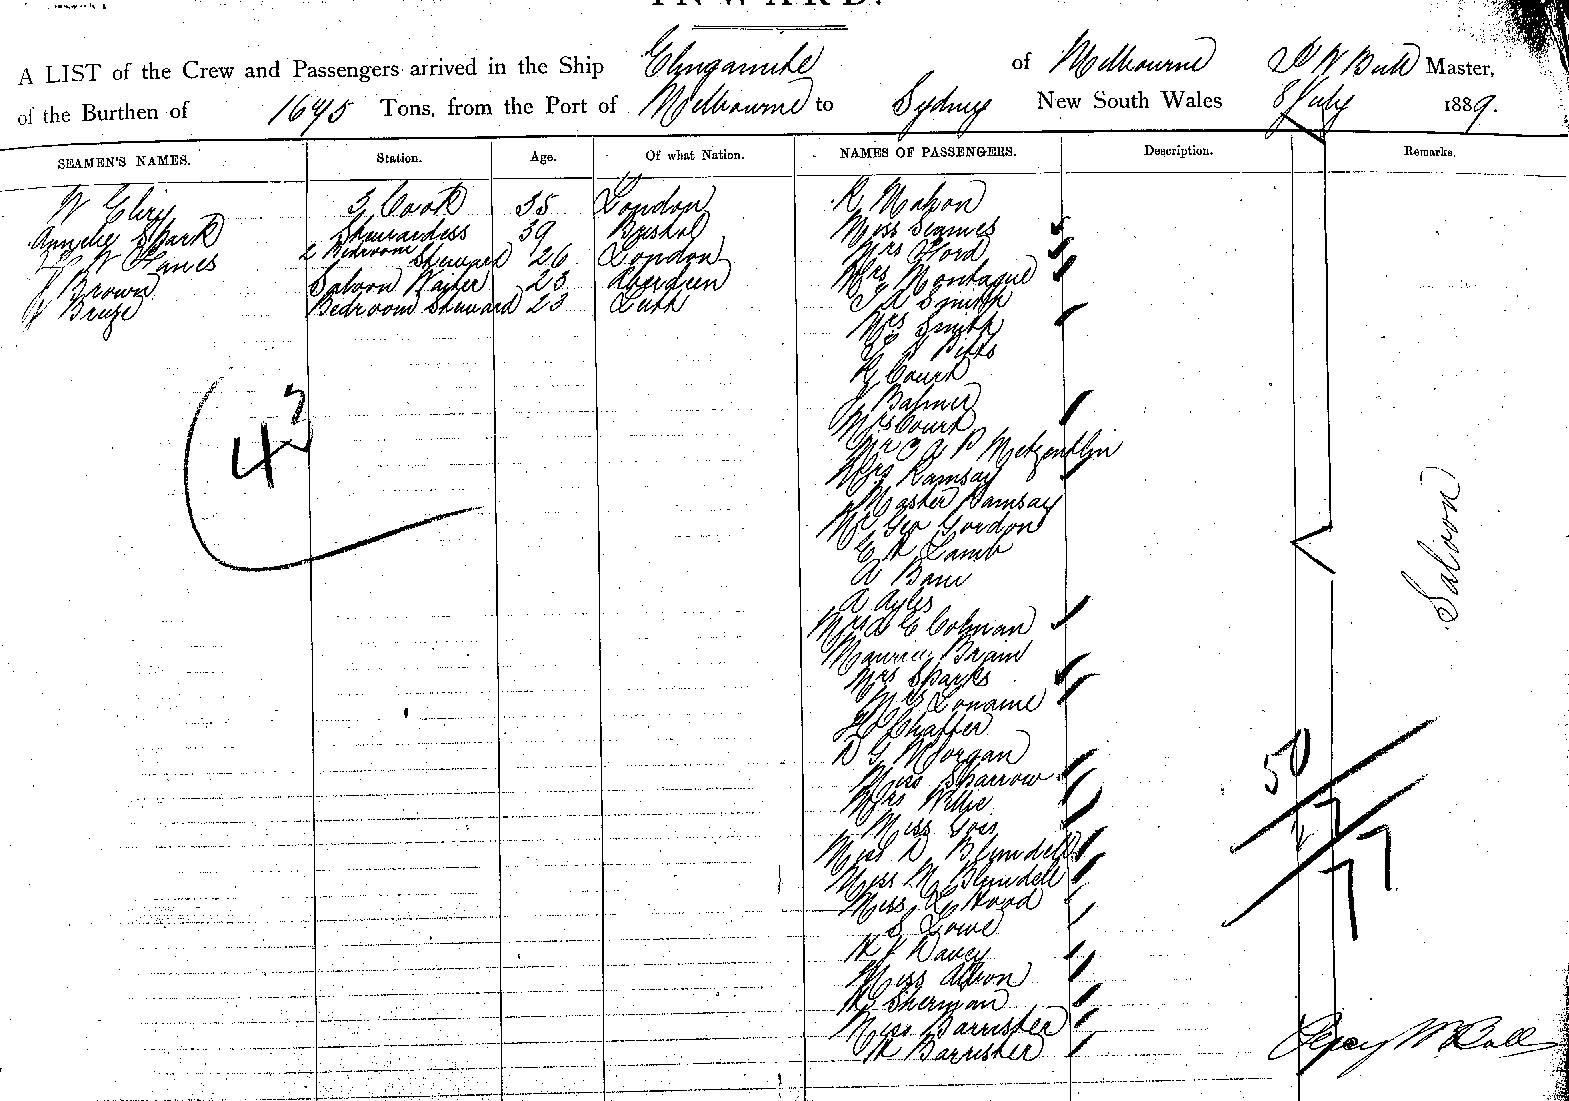 INWARD.
A LIST of the Crew and Passengers arrived in the Ship Elingamite of Melbourne Master,
of the Burthen of 1675 Tons, from the Port of Melbourne to Sydney New South Wales 8 July 1889.
SEAMEN'S NAMES. Station. Age. Of what Nation. NAMES OF PASSENGERS. Description. Remarks.
W 2 Cook 35 London R Mahon
Amelie Spark Stewardess 39 Bristol Miss
W Hanes 2 Bedroom Steward 26 London Mrs Ford
J Brown Saloon Waiter 23 Aberdeen Mrs Montague
Bedroom Steward 23 Leith Smith
Mrs Smith
Pitts
Court
J Balmer
Mrs Court
43
Mr C A P
Mrs Ramsay
Master Ramsay
Mr Geo Gordon
Lamb
A
A Ayles
Mrs A E Colman
Maurice
Mrs Sparks
Mrs Loraine
Chaffer
D G Morgan
Miss Sparrow
Mrs Willie
Miss
Miss D Blundell
Miss M Blundell
Miss Wood
S Lowe
Davey
Miss Albon
Sherman
Miss Barrister
Barrister
Saloon
50
27
77